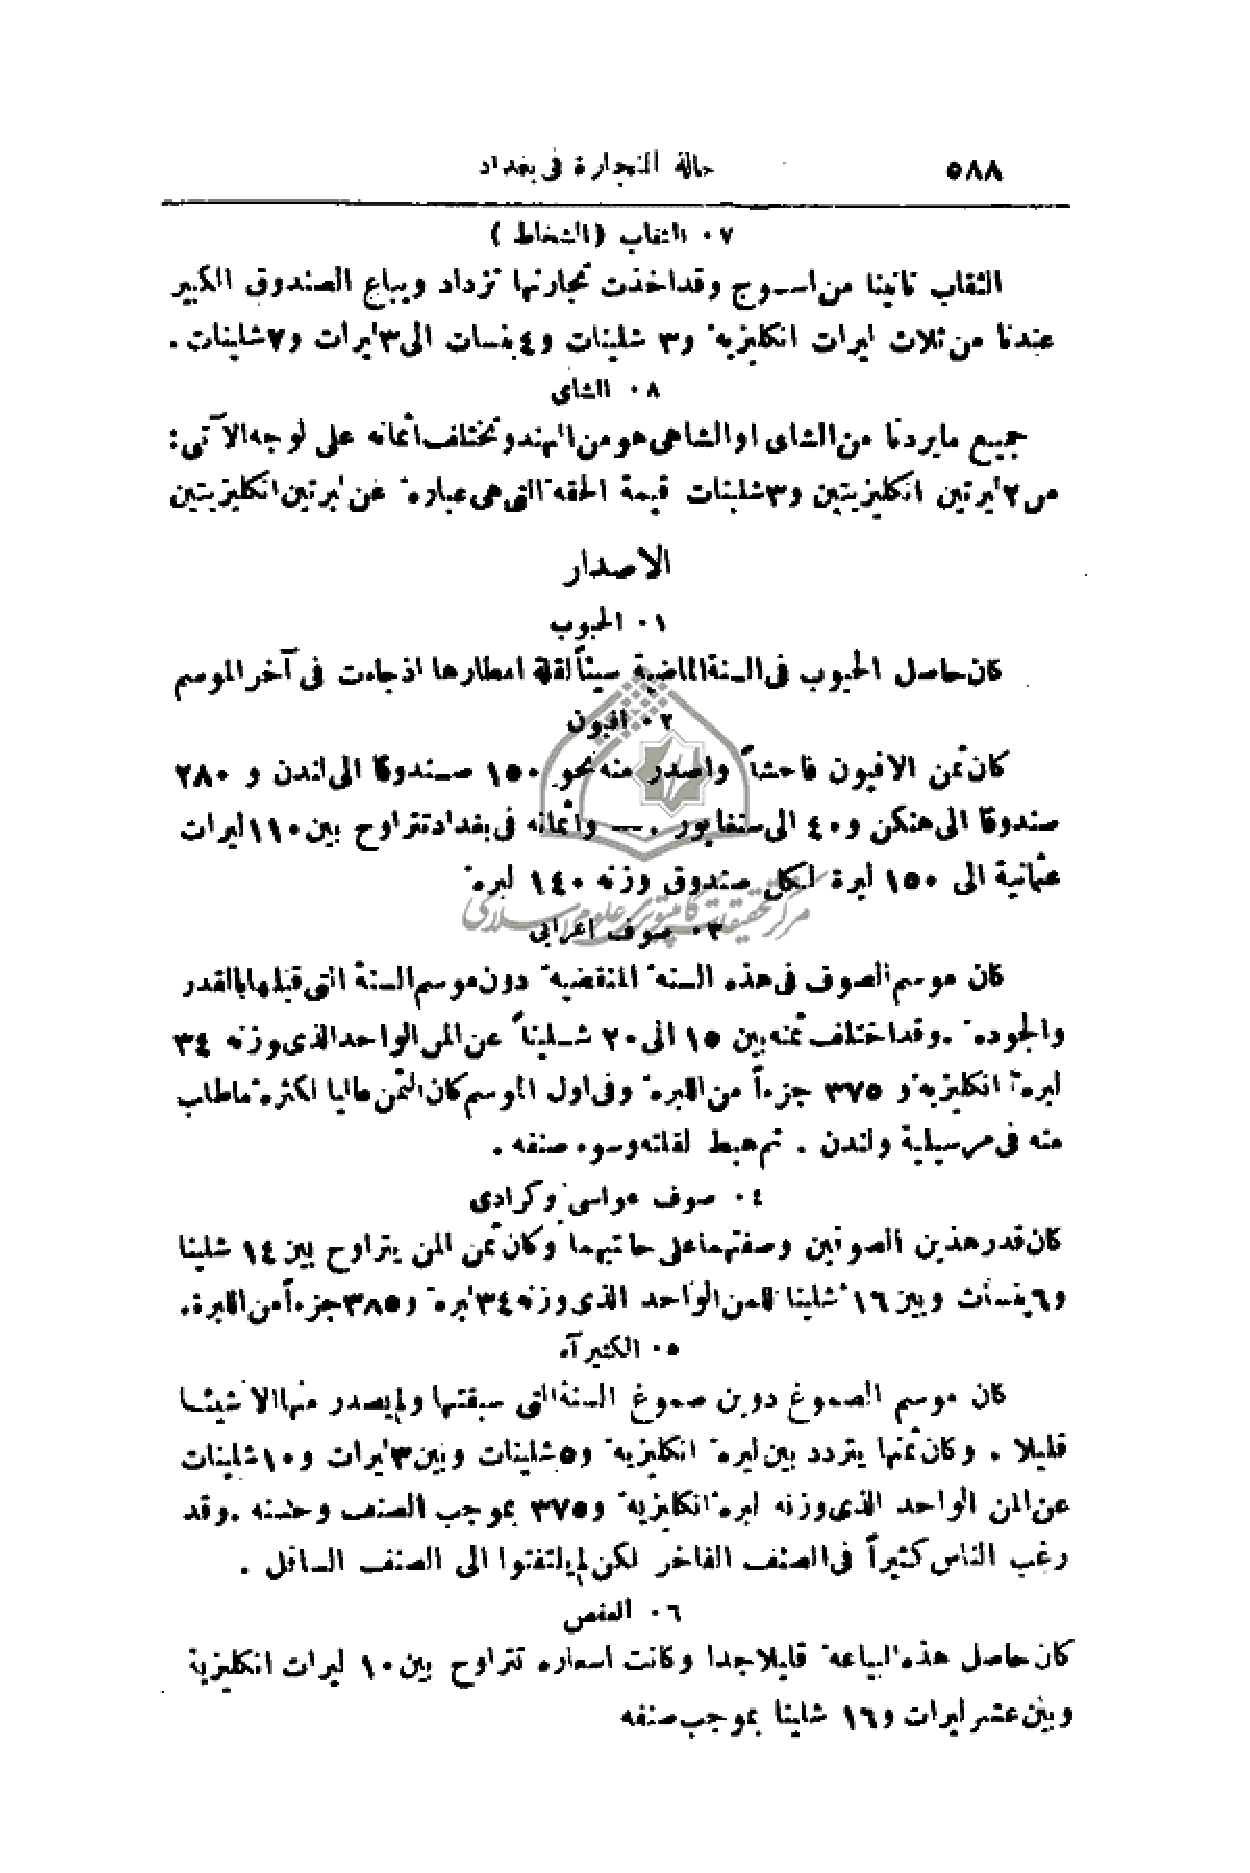 ٥٨٨ حالة التجارة في بغداد
٠٧ الثقاب (الشخاط)
الثقاب تاتينا من اسوج وقد اخذت تجارتها تزداد ويباع الصندوق الكبير
عندنا من ثلاث ليرات انكليزية و٣ شلينات و٤ بنسات الى ٣ ليرات و٧ شلينات .
٠٨ الشاى
جميع مايردنا من الشاى او الشاهى هو من الهند وتختلف أثمانه على لوجه الآتى :
من ٢ ليرتين انكليزيتين و٣ شلينات قيمة الحقة التى هى عبارة عن ليرتين انكليزيتين
الاصدار
٠١ الحبوب
كان حاصل الحبوب فى السنة الماضية سيئاً لقلة امطارها اذ جاءت فى آخر الموسم
٠٢ افيون
كان ثمن الافيون فاحشاً واصدر منه نحو ١٥٠ صندوقا الى لندن و ٢٨٠
صندوقا الى هنكن و٤٠ الى سنغابور . — واثمانه فى بغداد تتراوح بين ١١٠ ليرات
عثمانية الى ١٥٠ ليرة لكل صندوق وزنه ١٤٠ لبرة
مركز تحقيقات كامپيوترى علوم اسلامى
٠٣ صوف اعرابى
كان موسم الصوف فى هذه السنة المنقضية دون موسم السنة التى قبلها بالقدر
والجودة . وقد اختلف ثمنه بين ١٥ الى ٢٠ شليناً عن المن الواحد الذى وزنه ٣٤
لبرة انكليزية و ٣٧٥ جزءاً من اللبرة وفى اول الموسم كان الثمن عاليا لكثرة ماطلب
منه فى مرسيلية ولندن . ثم هبط لقلته وسوء صنفه .
٠٤ صوف عواسى وكرادى
كان قدر هذين الصوفين وصفتهما على حالتيهما وكان ثمن المن يتراوح بين ١٤ شلينا
و٦ بنسات وبين ١٦ شلينا للمن الواحد الذى وزنه ٣٤ لبرة و٣٨٥ جزءاً من اللبرة .
٠٥ الكثيرآء
كان موسم الصموغ دون صموغ السنة التى سبقتها ولم يصدر منها الا شيئا
قليلا . وكان ثمنها يتردد بين ليرة انكليزية و٥ شلينات وبين ٣ ليرات و١٠ شلينات
عن المن الواحد الذى وزنه لبرة انكليزية و٣٧٥ بموجب الصنف وحسنه . وقد
رغب الناس كثيراً فى الصنف الفاخر لكن لم يلتفتوا الى الصنف السافل .
٠٦ العفص
كان حاصل هذه البياعة قليلا جدا وكانت اسعاره تتراوح بين ١٠ ليرات انكليزية
وبين عشر ليرات و١٦ شلينا بموجب صنفه